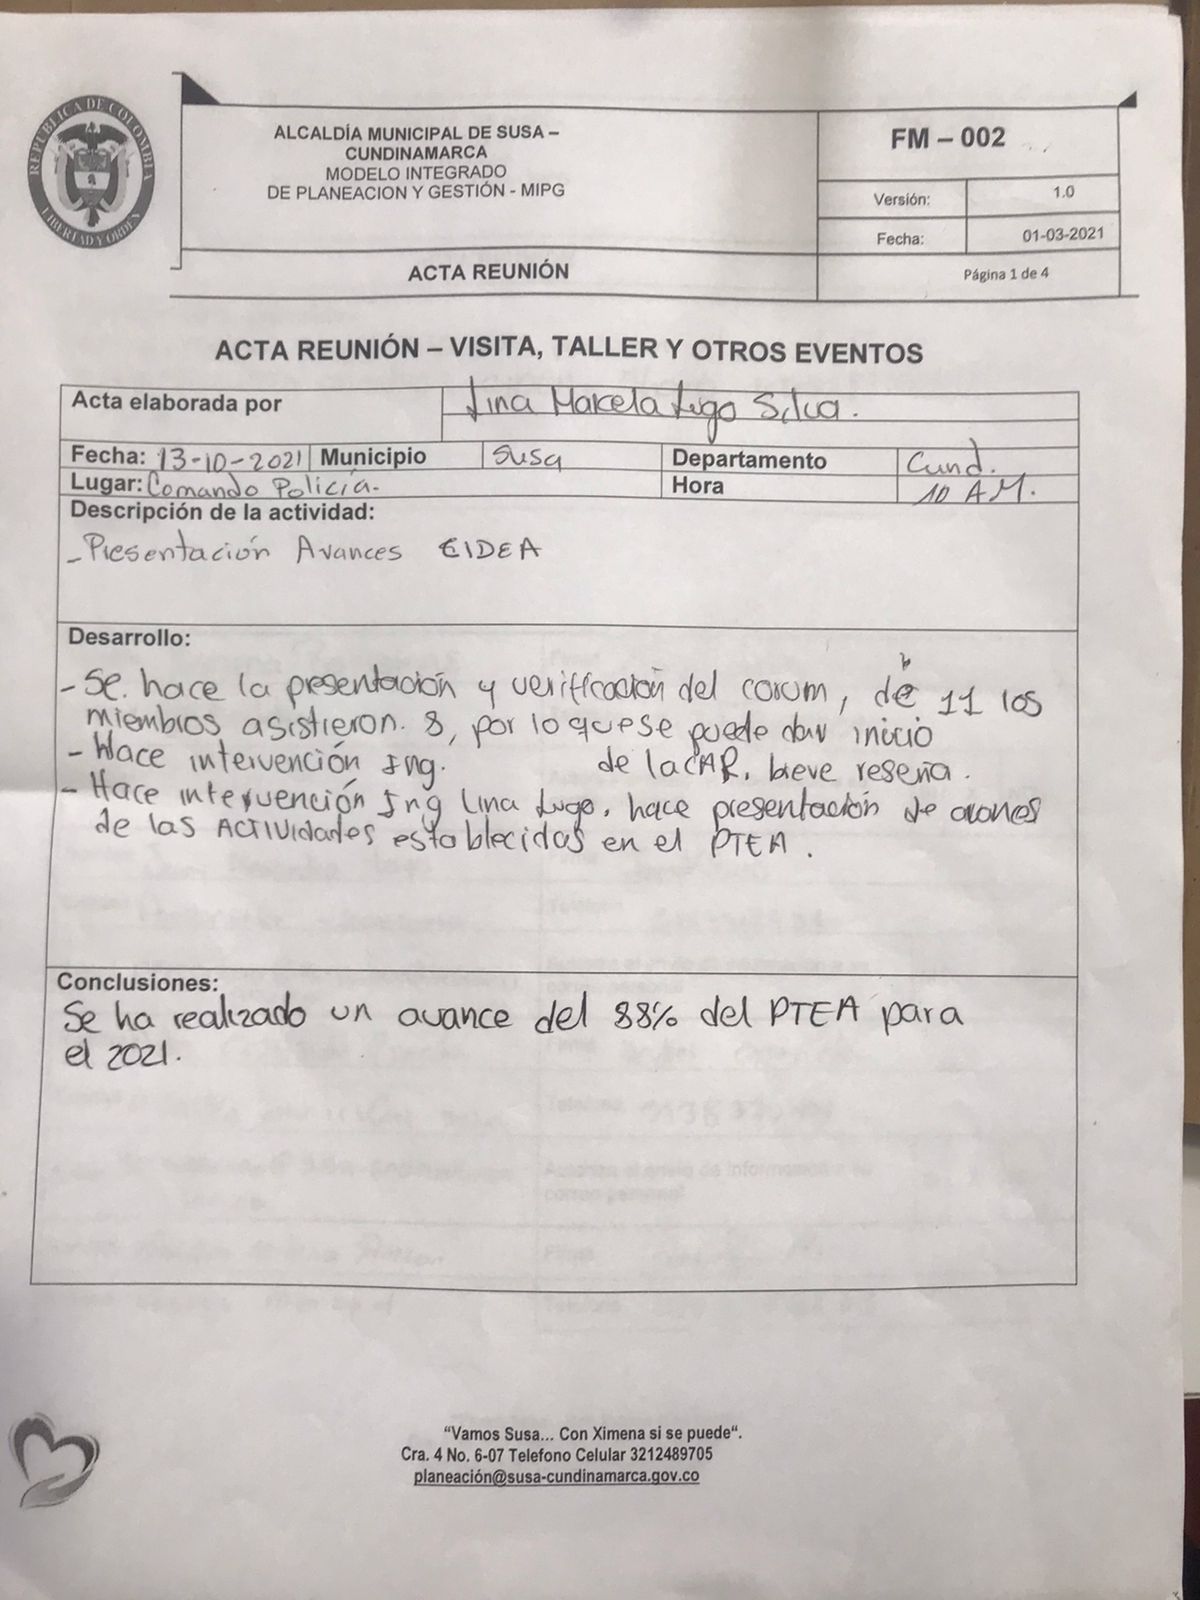 REPÚBLICA DE COLOMBIA
LIBERTAD Y ORDEN
ALCALDÍA MUNICIPAL DE SUSA –
CUNDINAMARCA
MODELO INTEGRADO
DE PLANEACION Y GESTIÓN - MIPG
FM – 002
Versión: 1.0
Fecha: 01-03-2021
ACTA REUNIÓN
Página 1 de 4
ACTA REUNIÓN – VISITA, TALLER Y OTROS EVENTOS
Acta elaborada por Lina Marcela Lugo Silva.
Fecha: 13-10-2021 Municipio Susa Departamento Cund.
Lugar: Comando Policía. Hora 10 AM.
Descripción de la actividad:
- Presentación Avances CIDEA
Desarrollo:
- Se. hace la presentación y verificación del corum, de 11 los
miembros asistieron. 8, por lo que se puede dar inicio
- Hace intervención Ing. de la CAR, breve reseña.
- Hace intervención Ing Lina Lugo, hace presentación de avances
de las Actividades establecidas en el PTEA.
Conclusiones:
Se ha realizado un avance del 88% del PTEA para
el 2021.
“Vamos Susa... Con Ximena si se puede“.
Cra. 4 No. 6-07 Telefono Celular 3212489705
planeación@susa-cundinamarca.gov.co